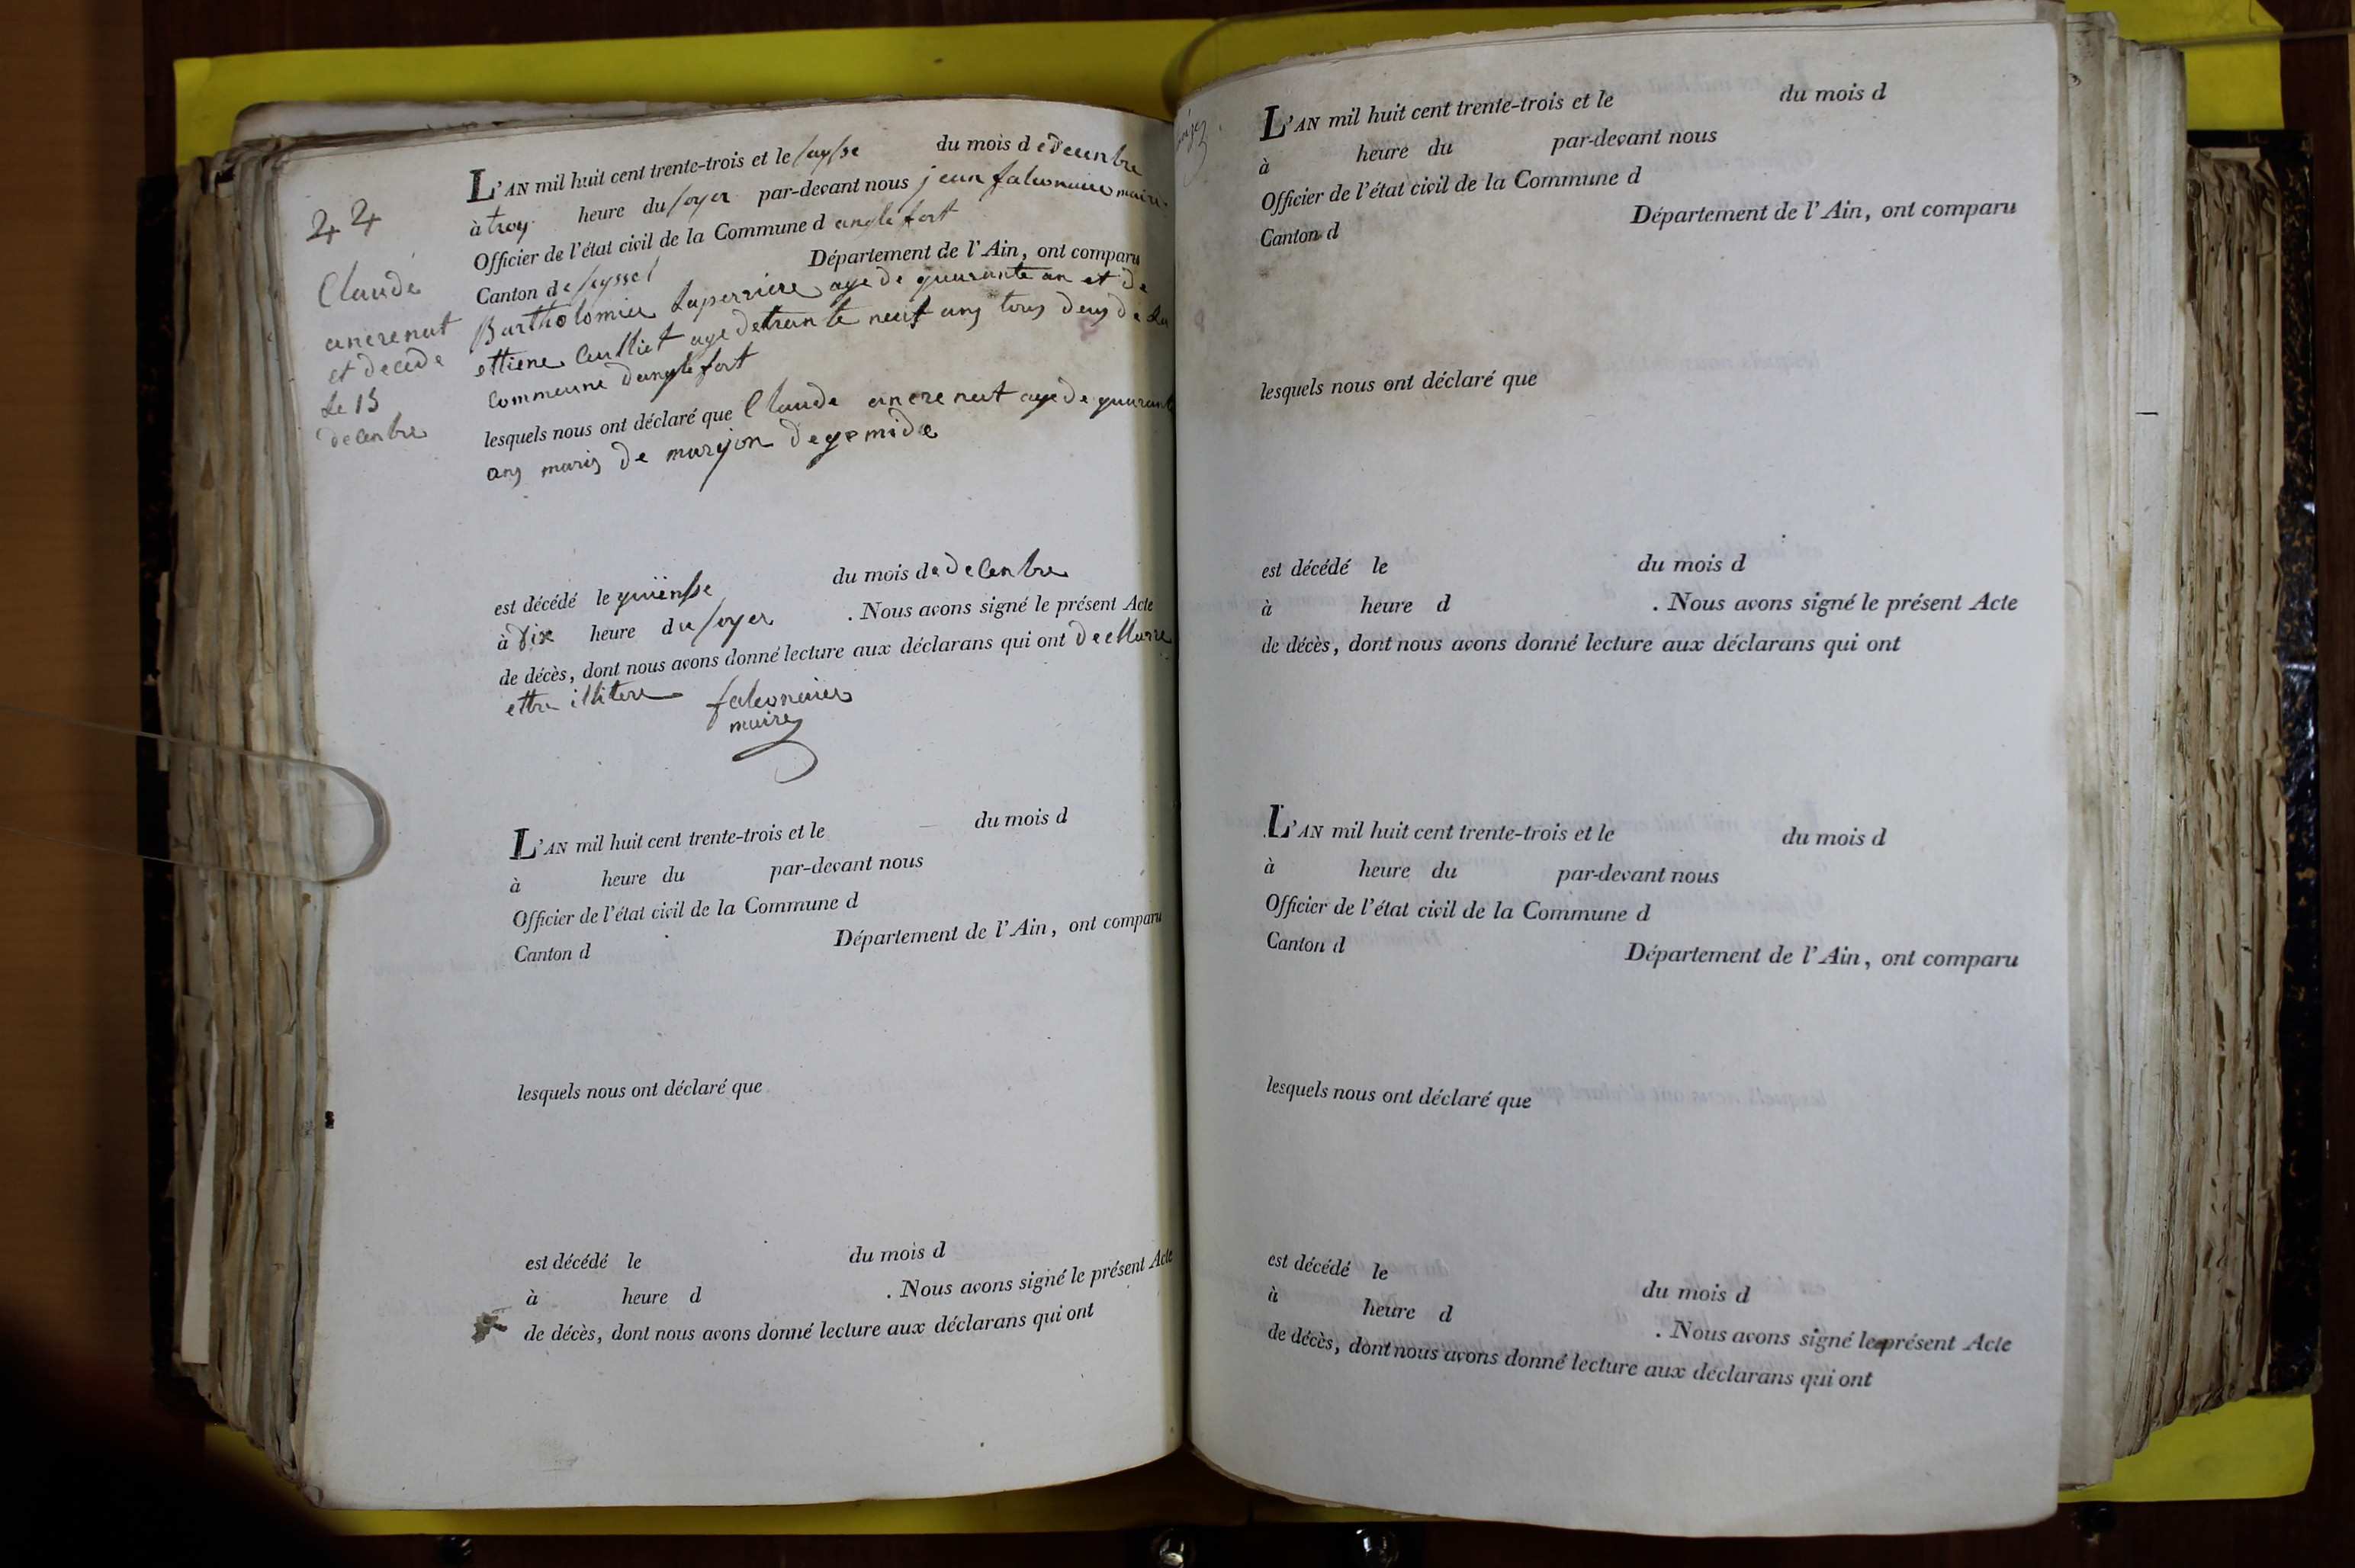 44
Claude
ancrenat
et decede
Le 15
decenbre
L'AN mil huit cent trente-trois et le saysse du mois de decenbre
à troy heure du soyer par-devant nous jean falconnier maire
Officier de l'état civil de la Commune d anglefort
Canton de seyssel Département de l'Ain, ont comparu
Bartholomier Laperriere age de quarante an et de
ettiene Culliet age de trante neuf ans tous deus de la
commeune danglefort
lesquels nous ont déclaré que Claude ancrenat age de quarante
ans maris de marijon
est décédé le quiensse du mois de decenbre
à dix heure du soyer . Nous avons signé le présent Acte
de décès, dont nous avons donné lecture aux déclarans qui ont decllarre
ettre illitere falconnier
maire
L'AN mil huit cent trente-trois et le du mois d
à heure du par-devant nous
Officier de l'état civil de la Commune d
Canton d Département de l'Ain, ont comparu
lesquels nous ont déclaré que
est décédé le du mois d
à heure d . Nous avons signé le présent Acte
de décès, dont nous avons donné lecture aux déclarans qui ont
L'AN mil huit cent trente-trois et le du mois d
à heure du par-devant nous
Officier de l'état civil de la Commune d
Canton d Département de l'Ain, ont comparu
lesquels nous ont déclaré que
est décédé le du mois d
à heure d . Nous avons signé le présent Acte
de décès, dont nous avons donné lecture aux déclarans qui ont
L'AN mil huit cent trente-trois et le du mois d
à heure du par-devant nous
Officier de l'état civil de la Commune d
Canton d Département de l'Ain, ont comparu
lesquels nous ont déclaré que
est décédé le du mois d
à heure d . Nous avons signé le présent Acte
de décès, dont nous avons donné lecture aux déclarans qui ont